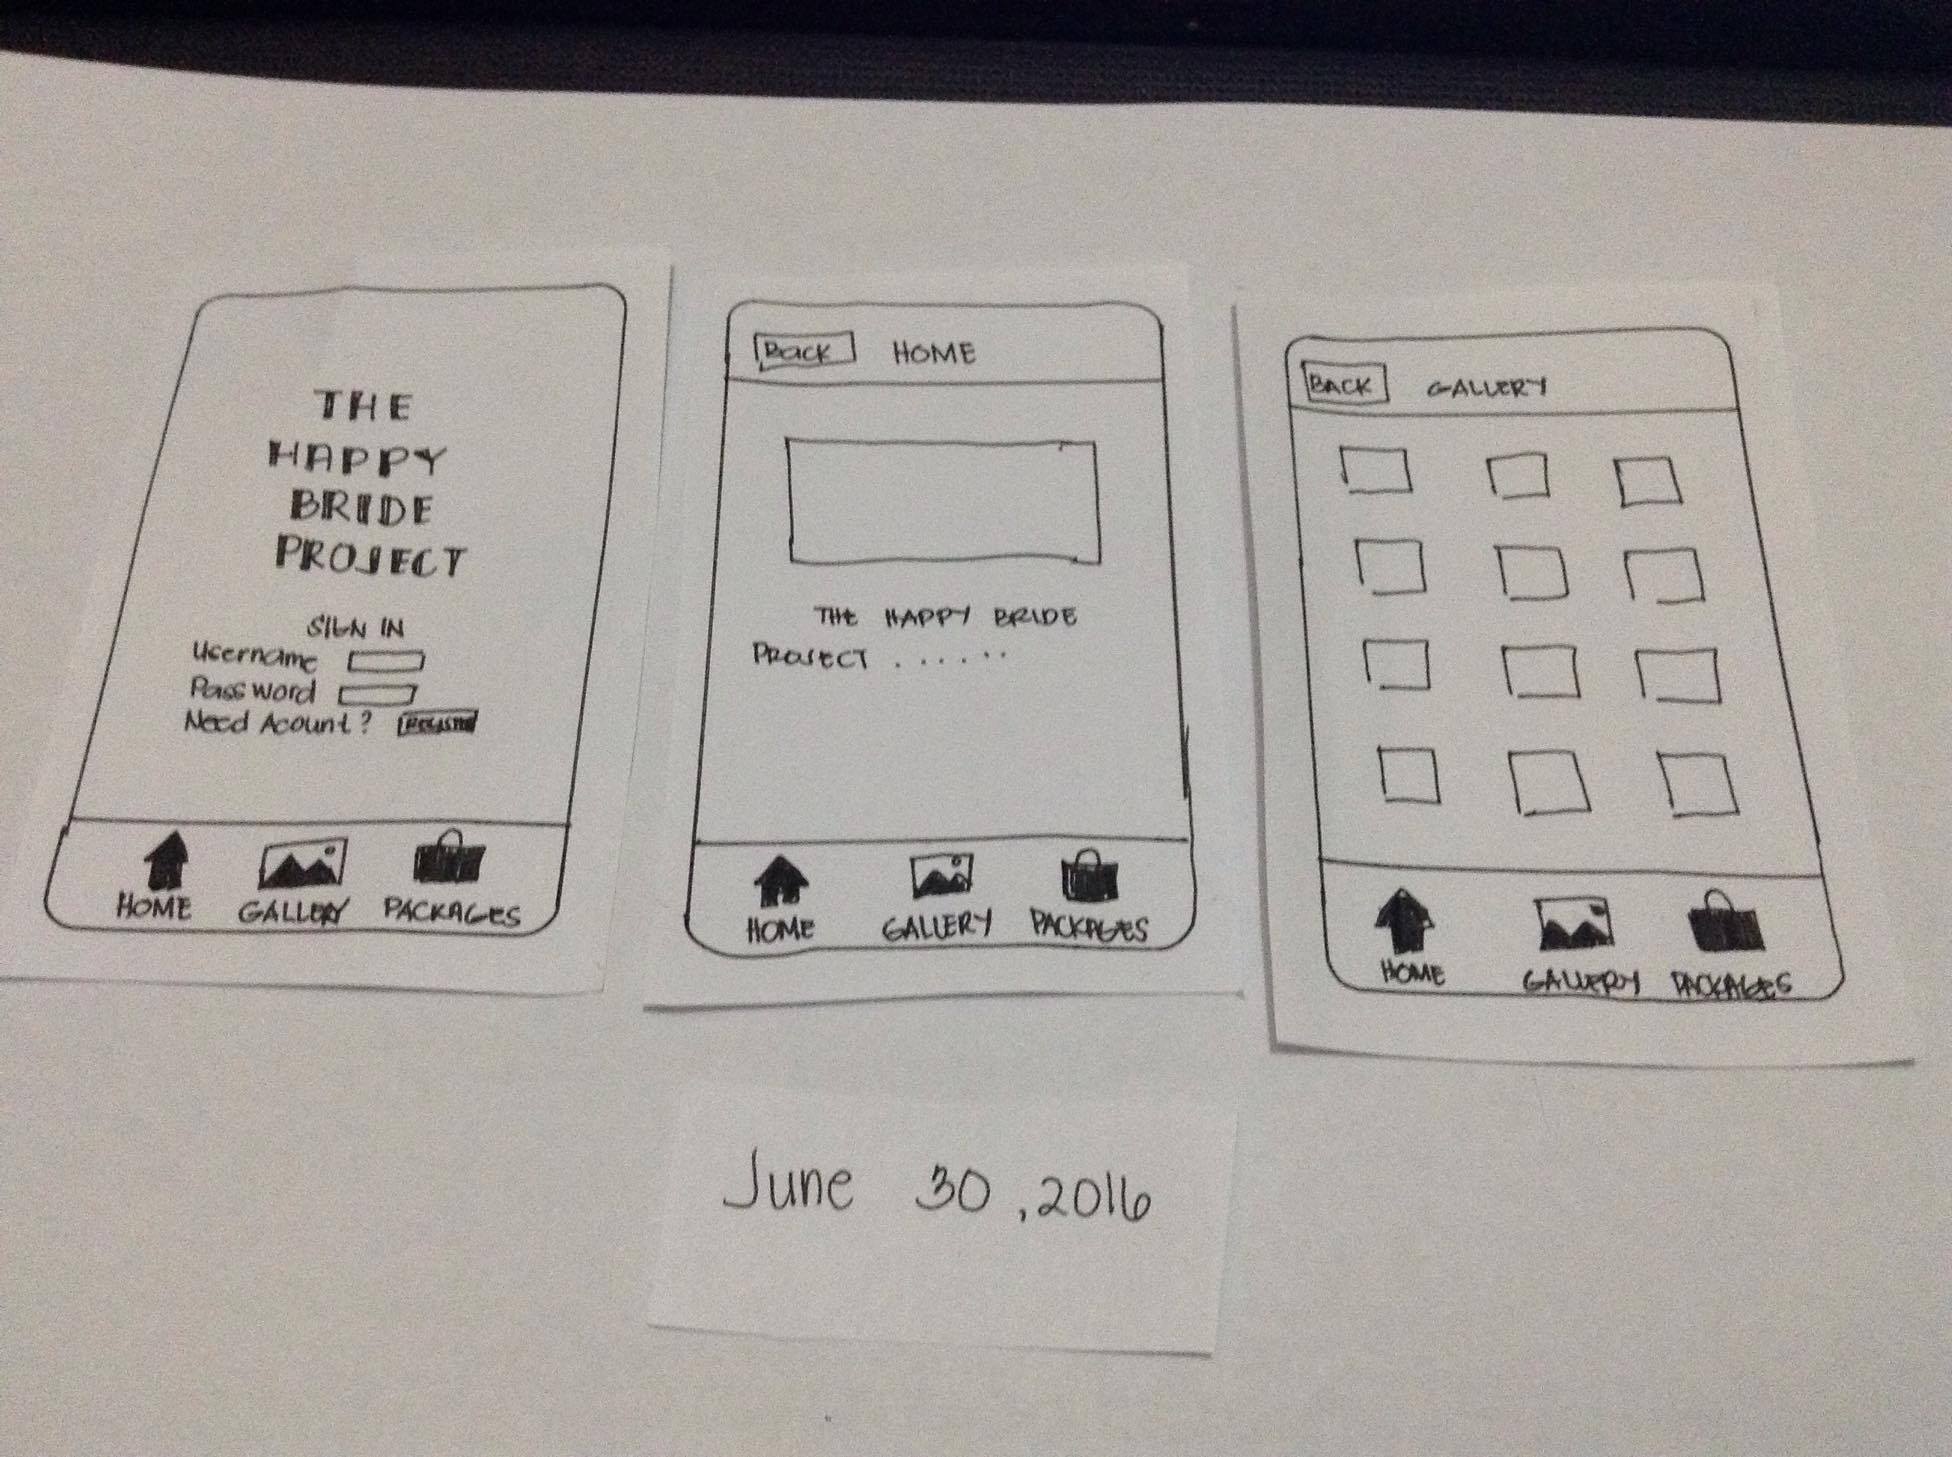 THE
HAPPY
BRIDE
PROJECT
SIGN IN
Username
Password
Need Acount? REGISTER
HOME GALLERY PACKAGES
Back HOME
THE HAPPY BRIDE
PROJECT ......
HOME GALLERY PACKAGES
BACK GALLERY
HOME GALLERY PACKAGES
June 30, 2016